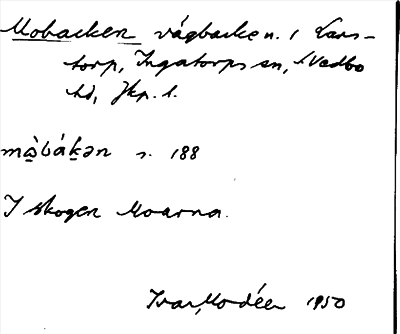 Mobacken vägbacke n. i Lars-
torp, Ingatorps sn, S Vedbo
hd, Jkp. l.
mò̤bákən s. 188
I skogen Moarna.
Ivar Modéer 1950